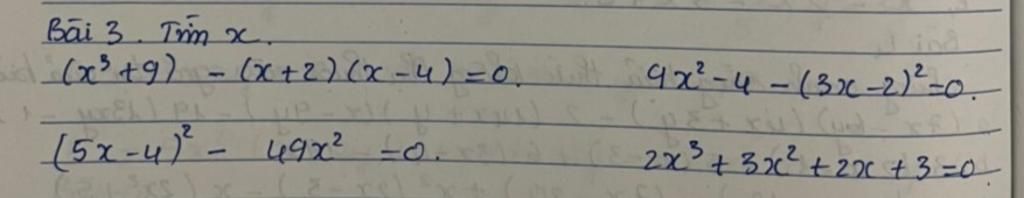 Bài 3. Tìm x.
(x³ + 9) - (x+2)(x-4) = 0. 9x² - 4 - (3x - 2)² = 0.
(5x - 4)² - 49x² = 0. 2x³ + 3x² + 2x + 3 = 0